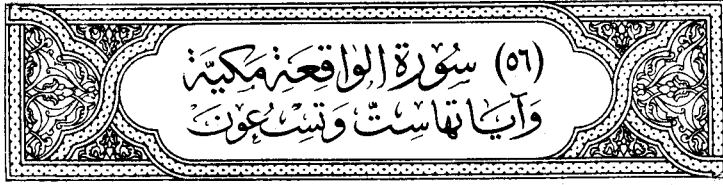 (٥٦) سُورَةُ الوَاقِعَةِ مَكِيَّة
وَآيَاتهَا سِتٌّ وَتِسْعُونَ